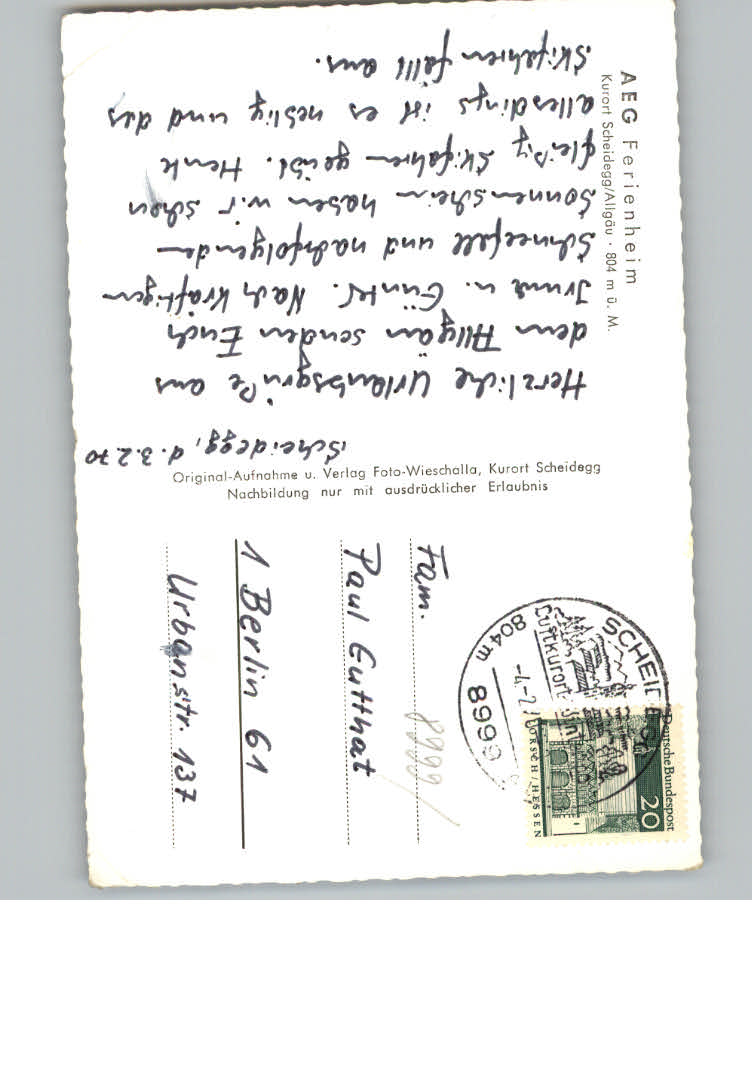 AEG Ferienheim
Kurort Scheidegg/Allgäu · 804 m ü. M.
Scheidegg, d. 3.2.70
Herzliche Urlaubsgrüße aus
dem Allgäu senden Euch
Irma u. Günter. Nach kräftigen
Schneefall und nachfolgenden
Sonnenschein haben wir schon
fleißig Skifahren geübt. Heute
allerdings ist es neblig und das
Skifahren fällt aus.
Original-Aufnahme u. Verlag Foto-Wieschalla, Kurort Scheidegg
Nachbildung nur mit ausdrücklicher Erlaubnis
Deutsche Bundespost
20
LORSCH/HESSEN
SCHEIDEGG
Luftkurort
-4.-2.
804m
8999
8999/
Fam.
Paul Gutthat
1 Berlin 61
Urbanstr. 137